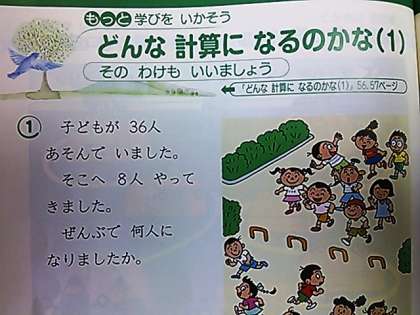 もっと 学びを いかそう
どんな 計算に なるのかな(1)
その わけも いいましょう
「どんな 計算に なるのかな(1)」56,57ページ
1 子どもが 36人
あそんで いました。
そこへ 8人 やって
きました。
ぜんぶで 何人に
なりましたか。